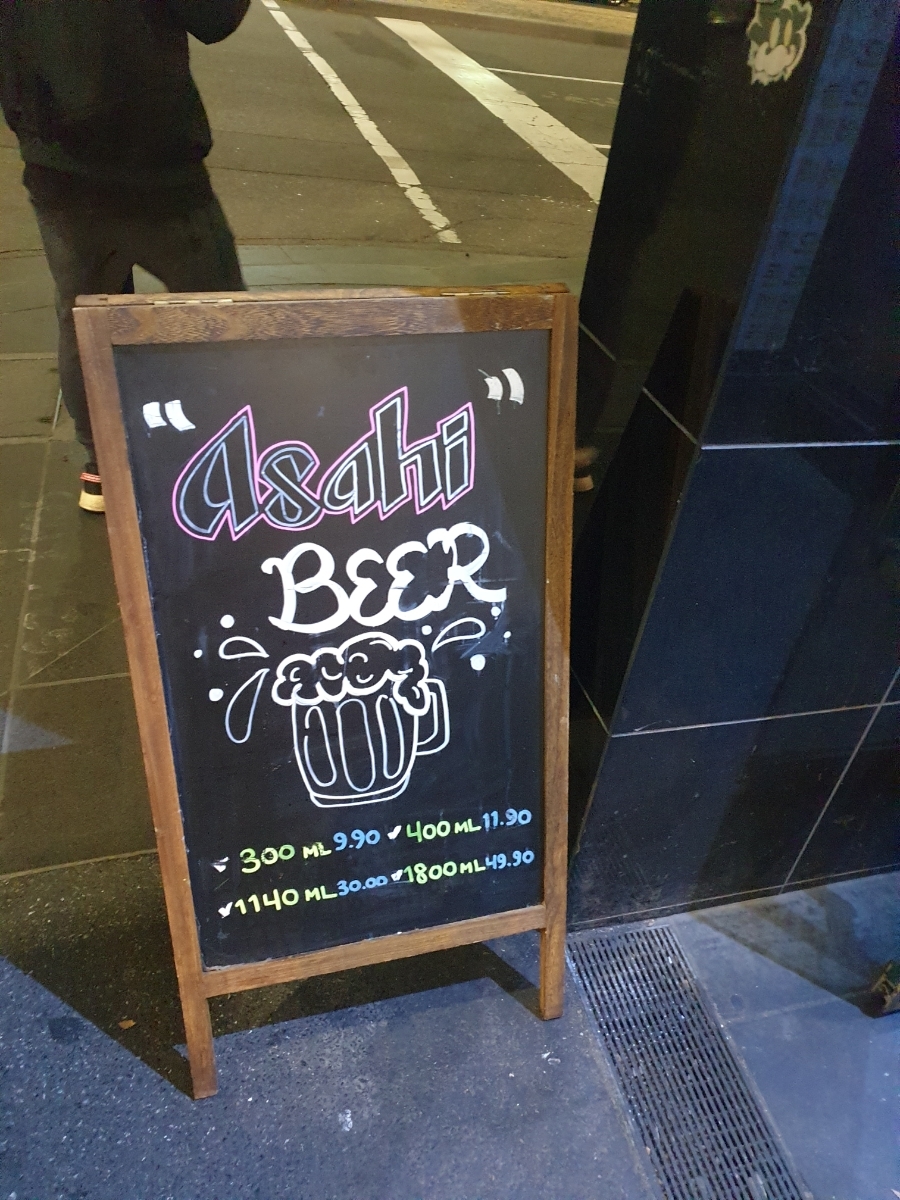 “Asahi”
BEER
300 ML 9.90 400 ML 11.90
1140 ML 30.00 1800 ML 49.90